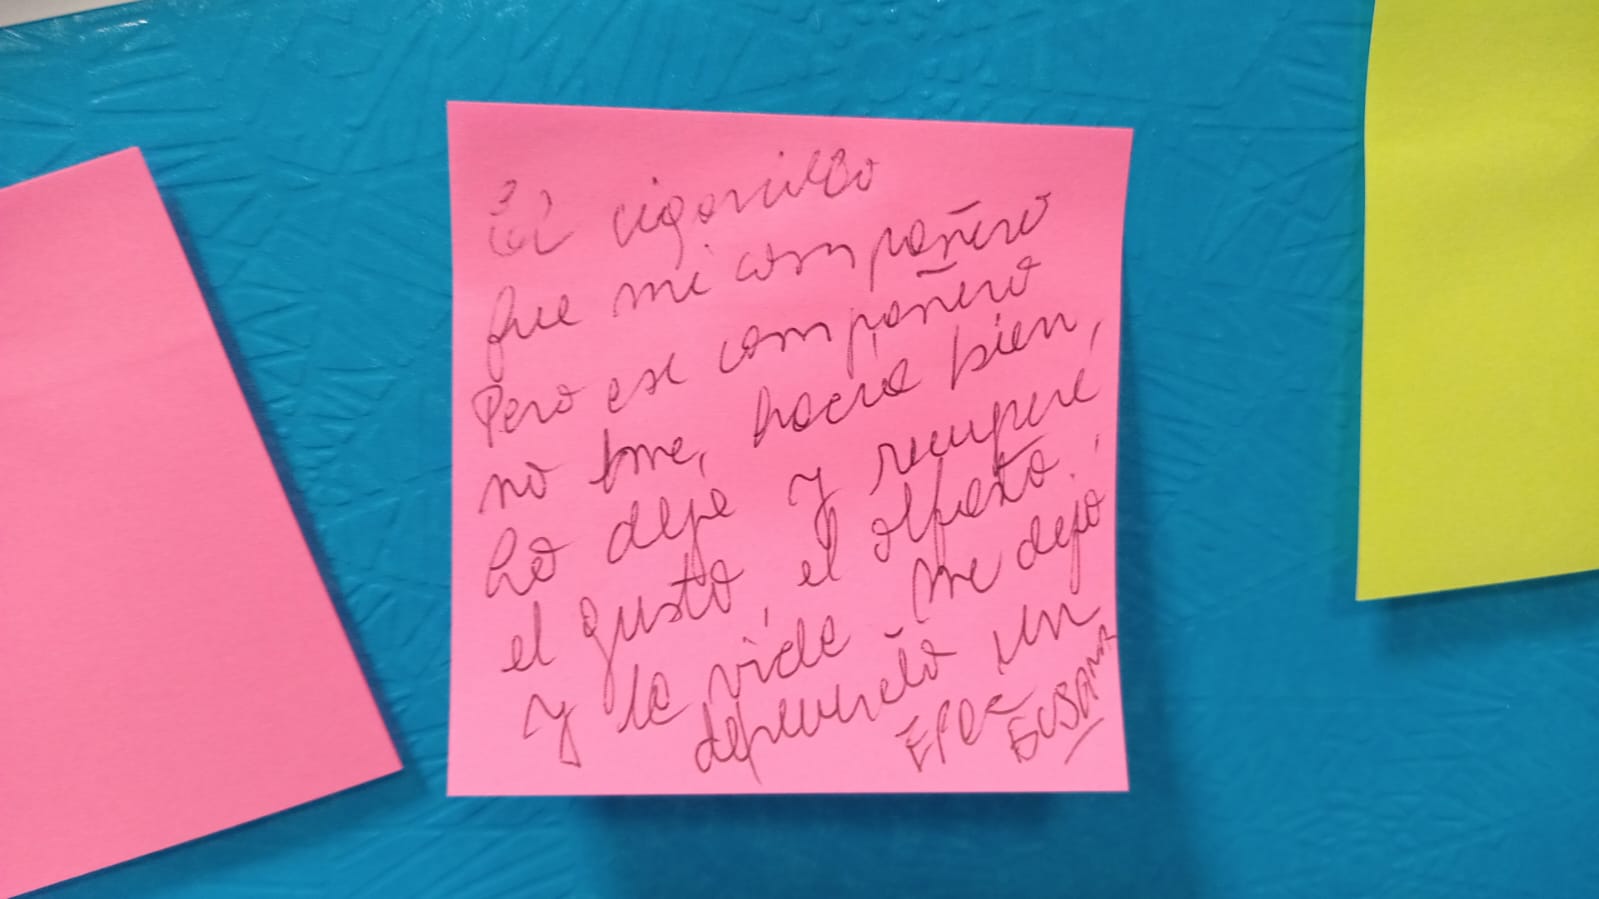 El cigarrillo
fue mi compañero
Pero ese compañero
no me, hacia bien,
Lo deje y recuperé
el gusto, el olfato.
y la vida me dejó
un
EPOC
SUSANA